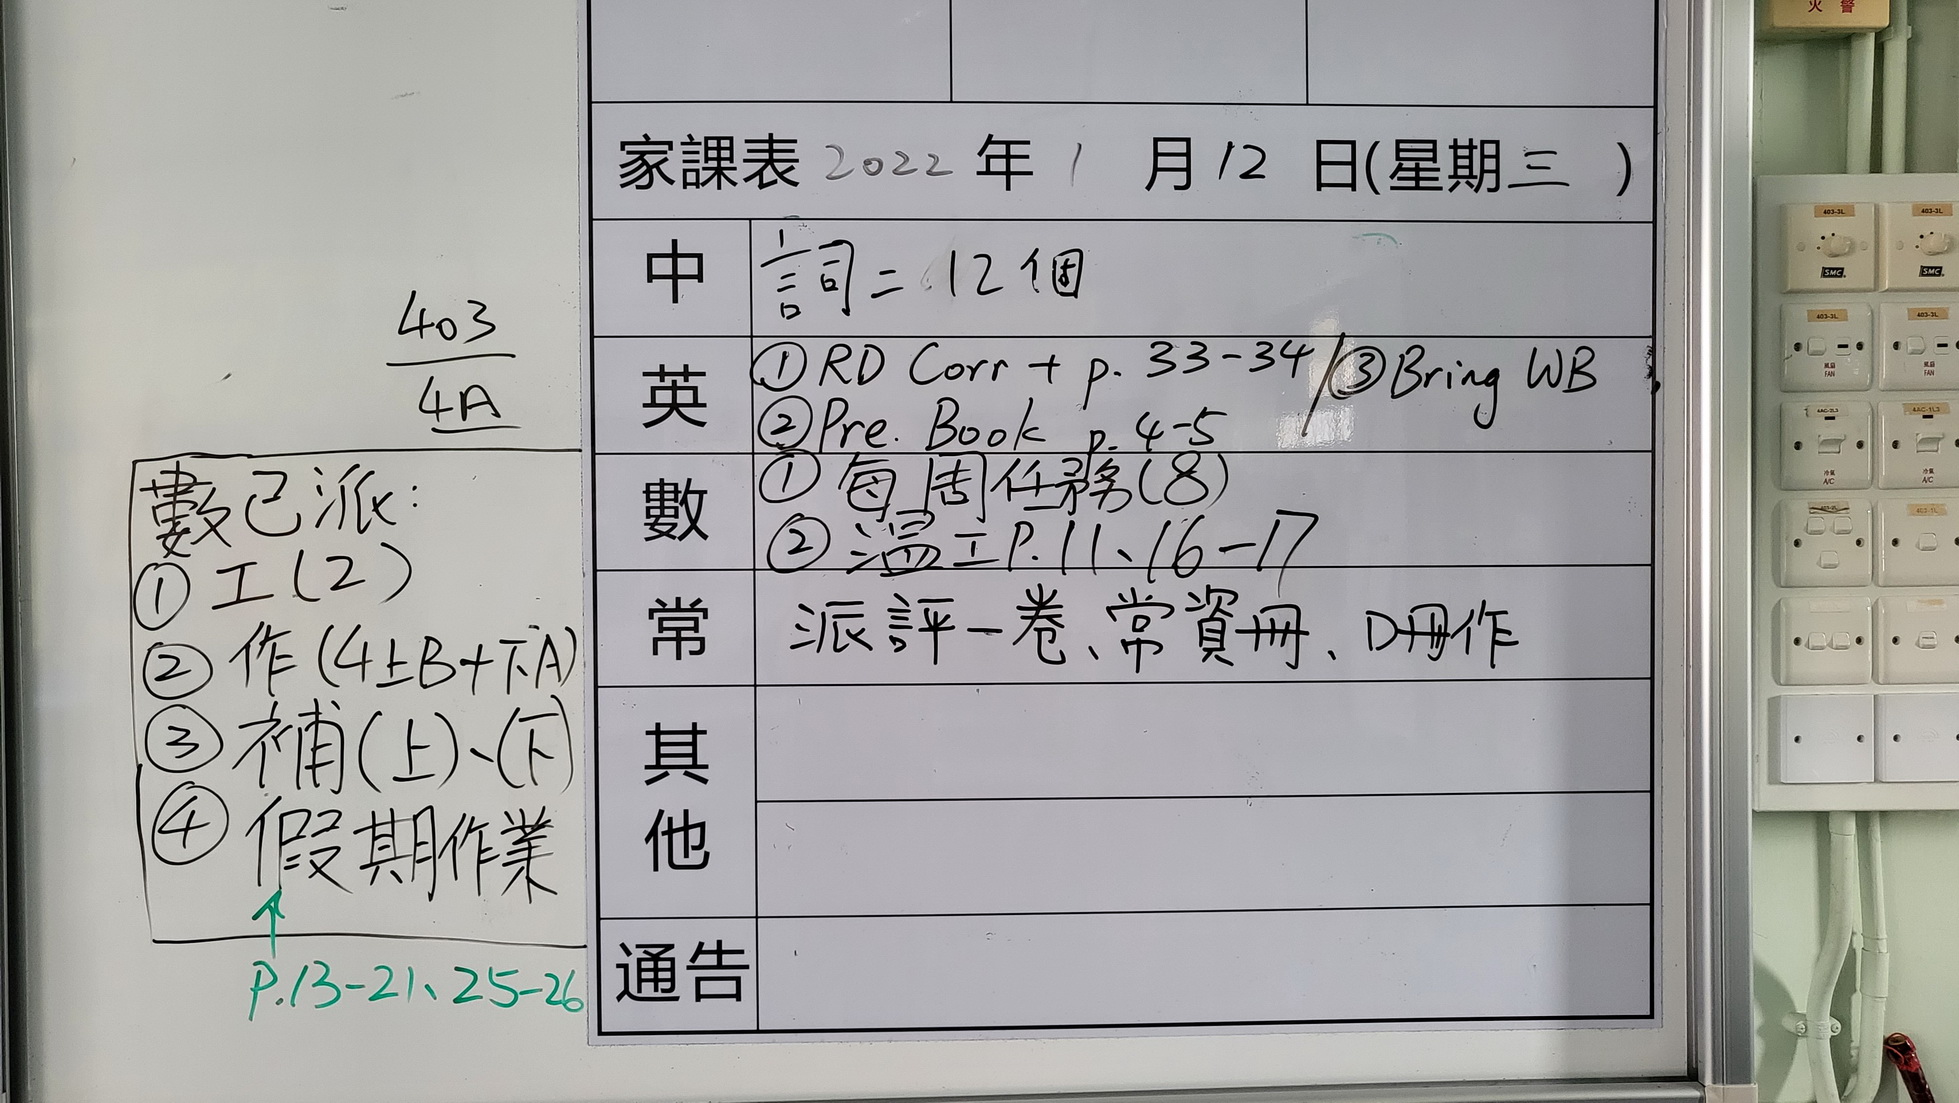 火 警
家課表 2022 年 1 月 12 日(星期三 )
中 詞= 12個
英 ①RD Corr + p. 33-34 / ③Bring WB
②Pre. Book p. 4-5
數 ① 每周任務(8)
② 溫工P.11、16-17
常 派評一卷、常資冊、D冊作
其他
通告
403
4A
數已派:
① 工(2)
② 作(4上B+下A)
③ 補(上)、(下)
④ 假期作業
↑
P.13-21、25-26
403-3L 403-3L
SMC SMC
403-3L 403-3L
風扇 FAN 風扇 FAN
冷氣 A/C 冷氣 A/C